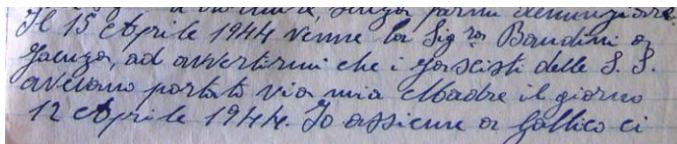 senza farmi denunziare.
Il 15 Aprile 1944 venne la Sig.ra Bandini a
Faenza, ad avvertirmi che i fascisti delle S. S.
avevano portato via mia Madre il giorno
12 Aprile 1944. Io assieme a Gallico ci